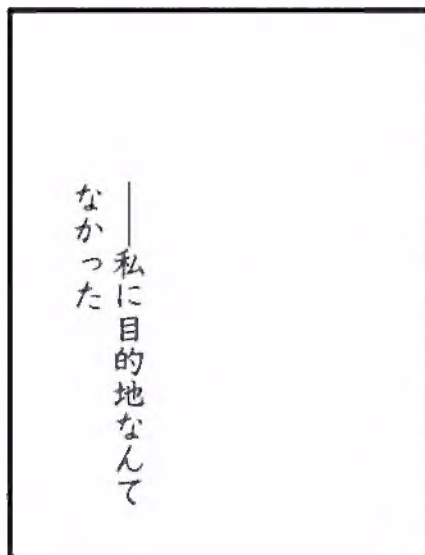 ――私に目的地なんて
なかった